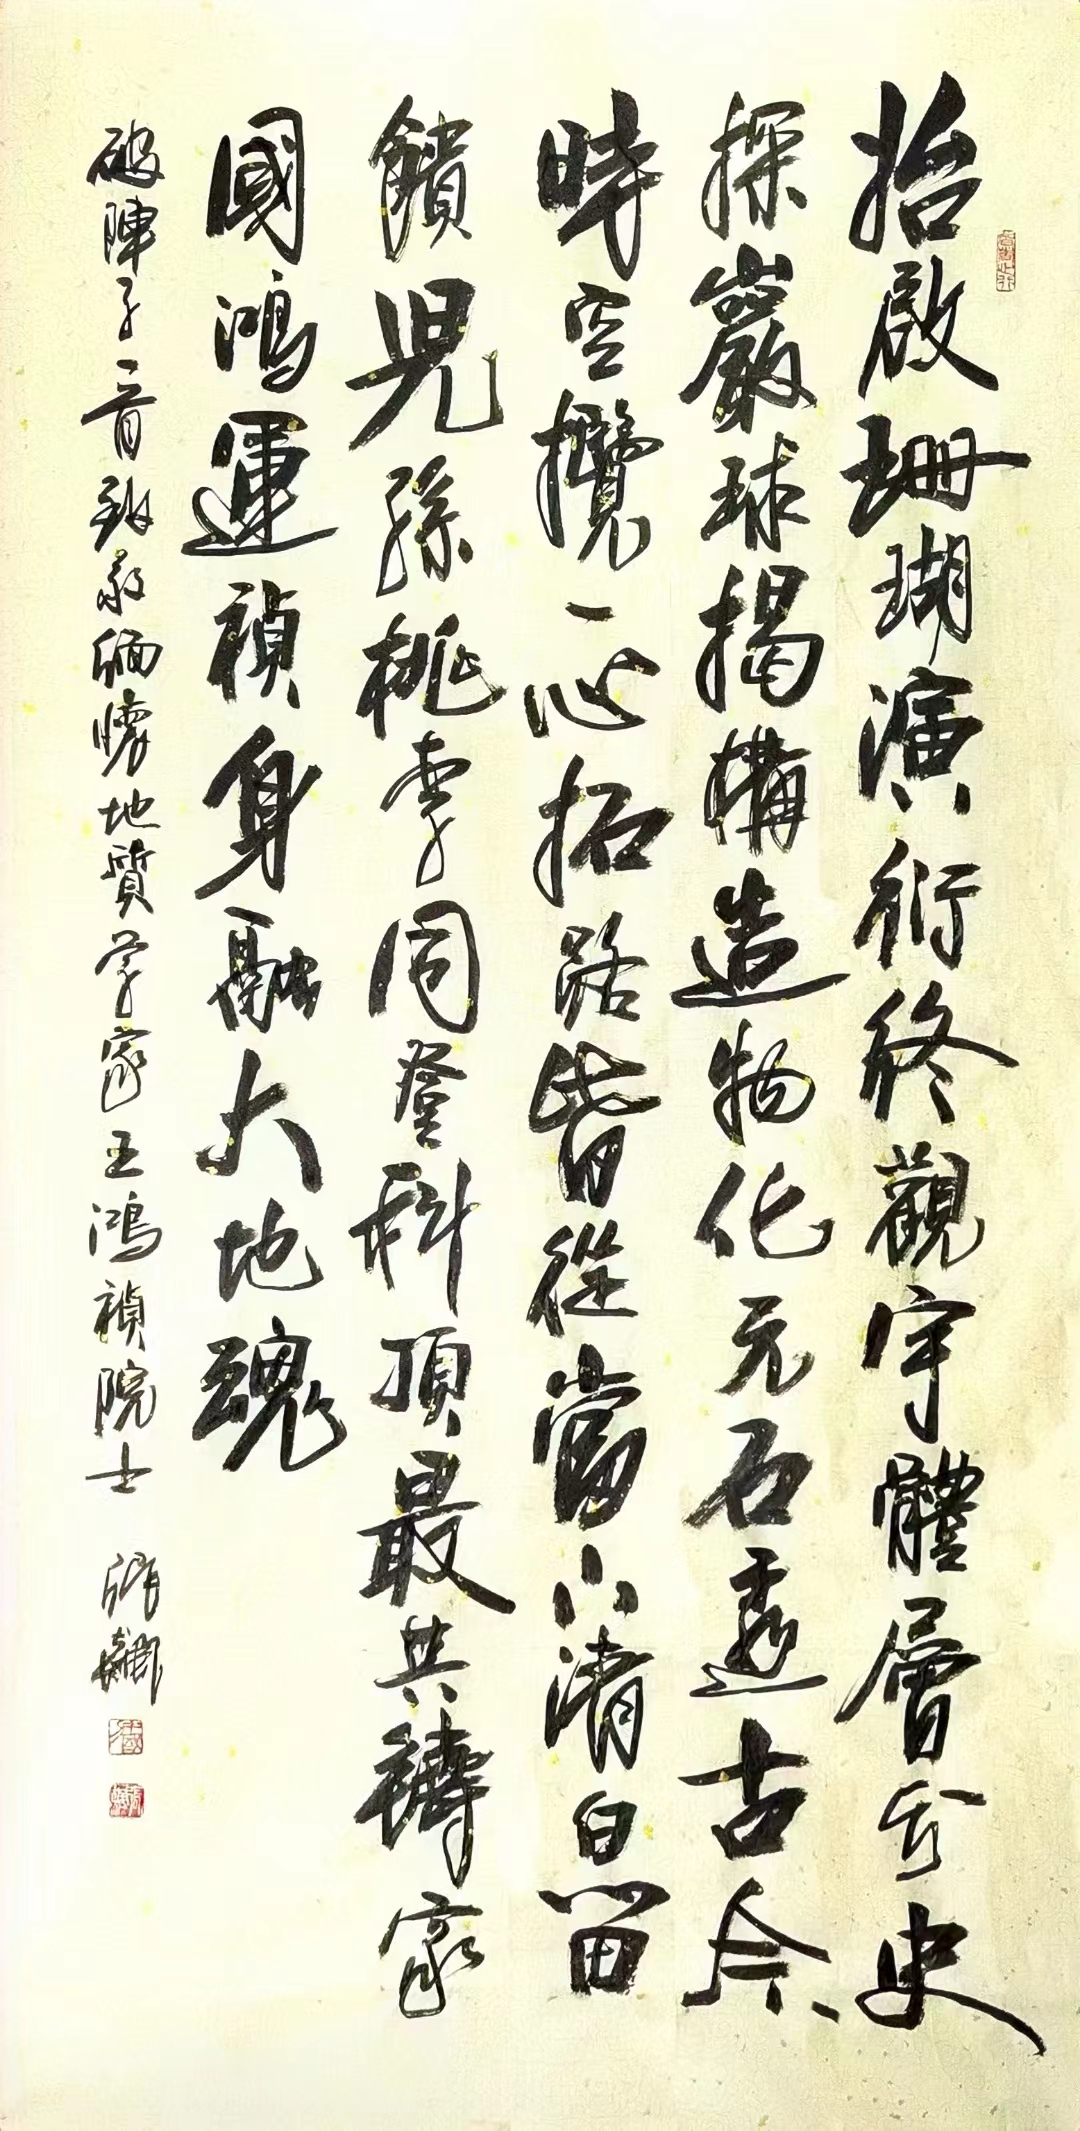 抬啟珊瑚演衍終觀宇體層分史
探巖球揭構造物化元石古今
時空攬一心拓路皆從當下清白留
饋兒孫桃李同登科頂最共禱家
國鴻運禎身融大地魂
破陣子一首致敬緬懷地質學家王鴻禎院士